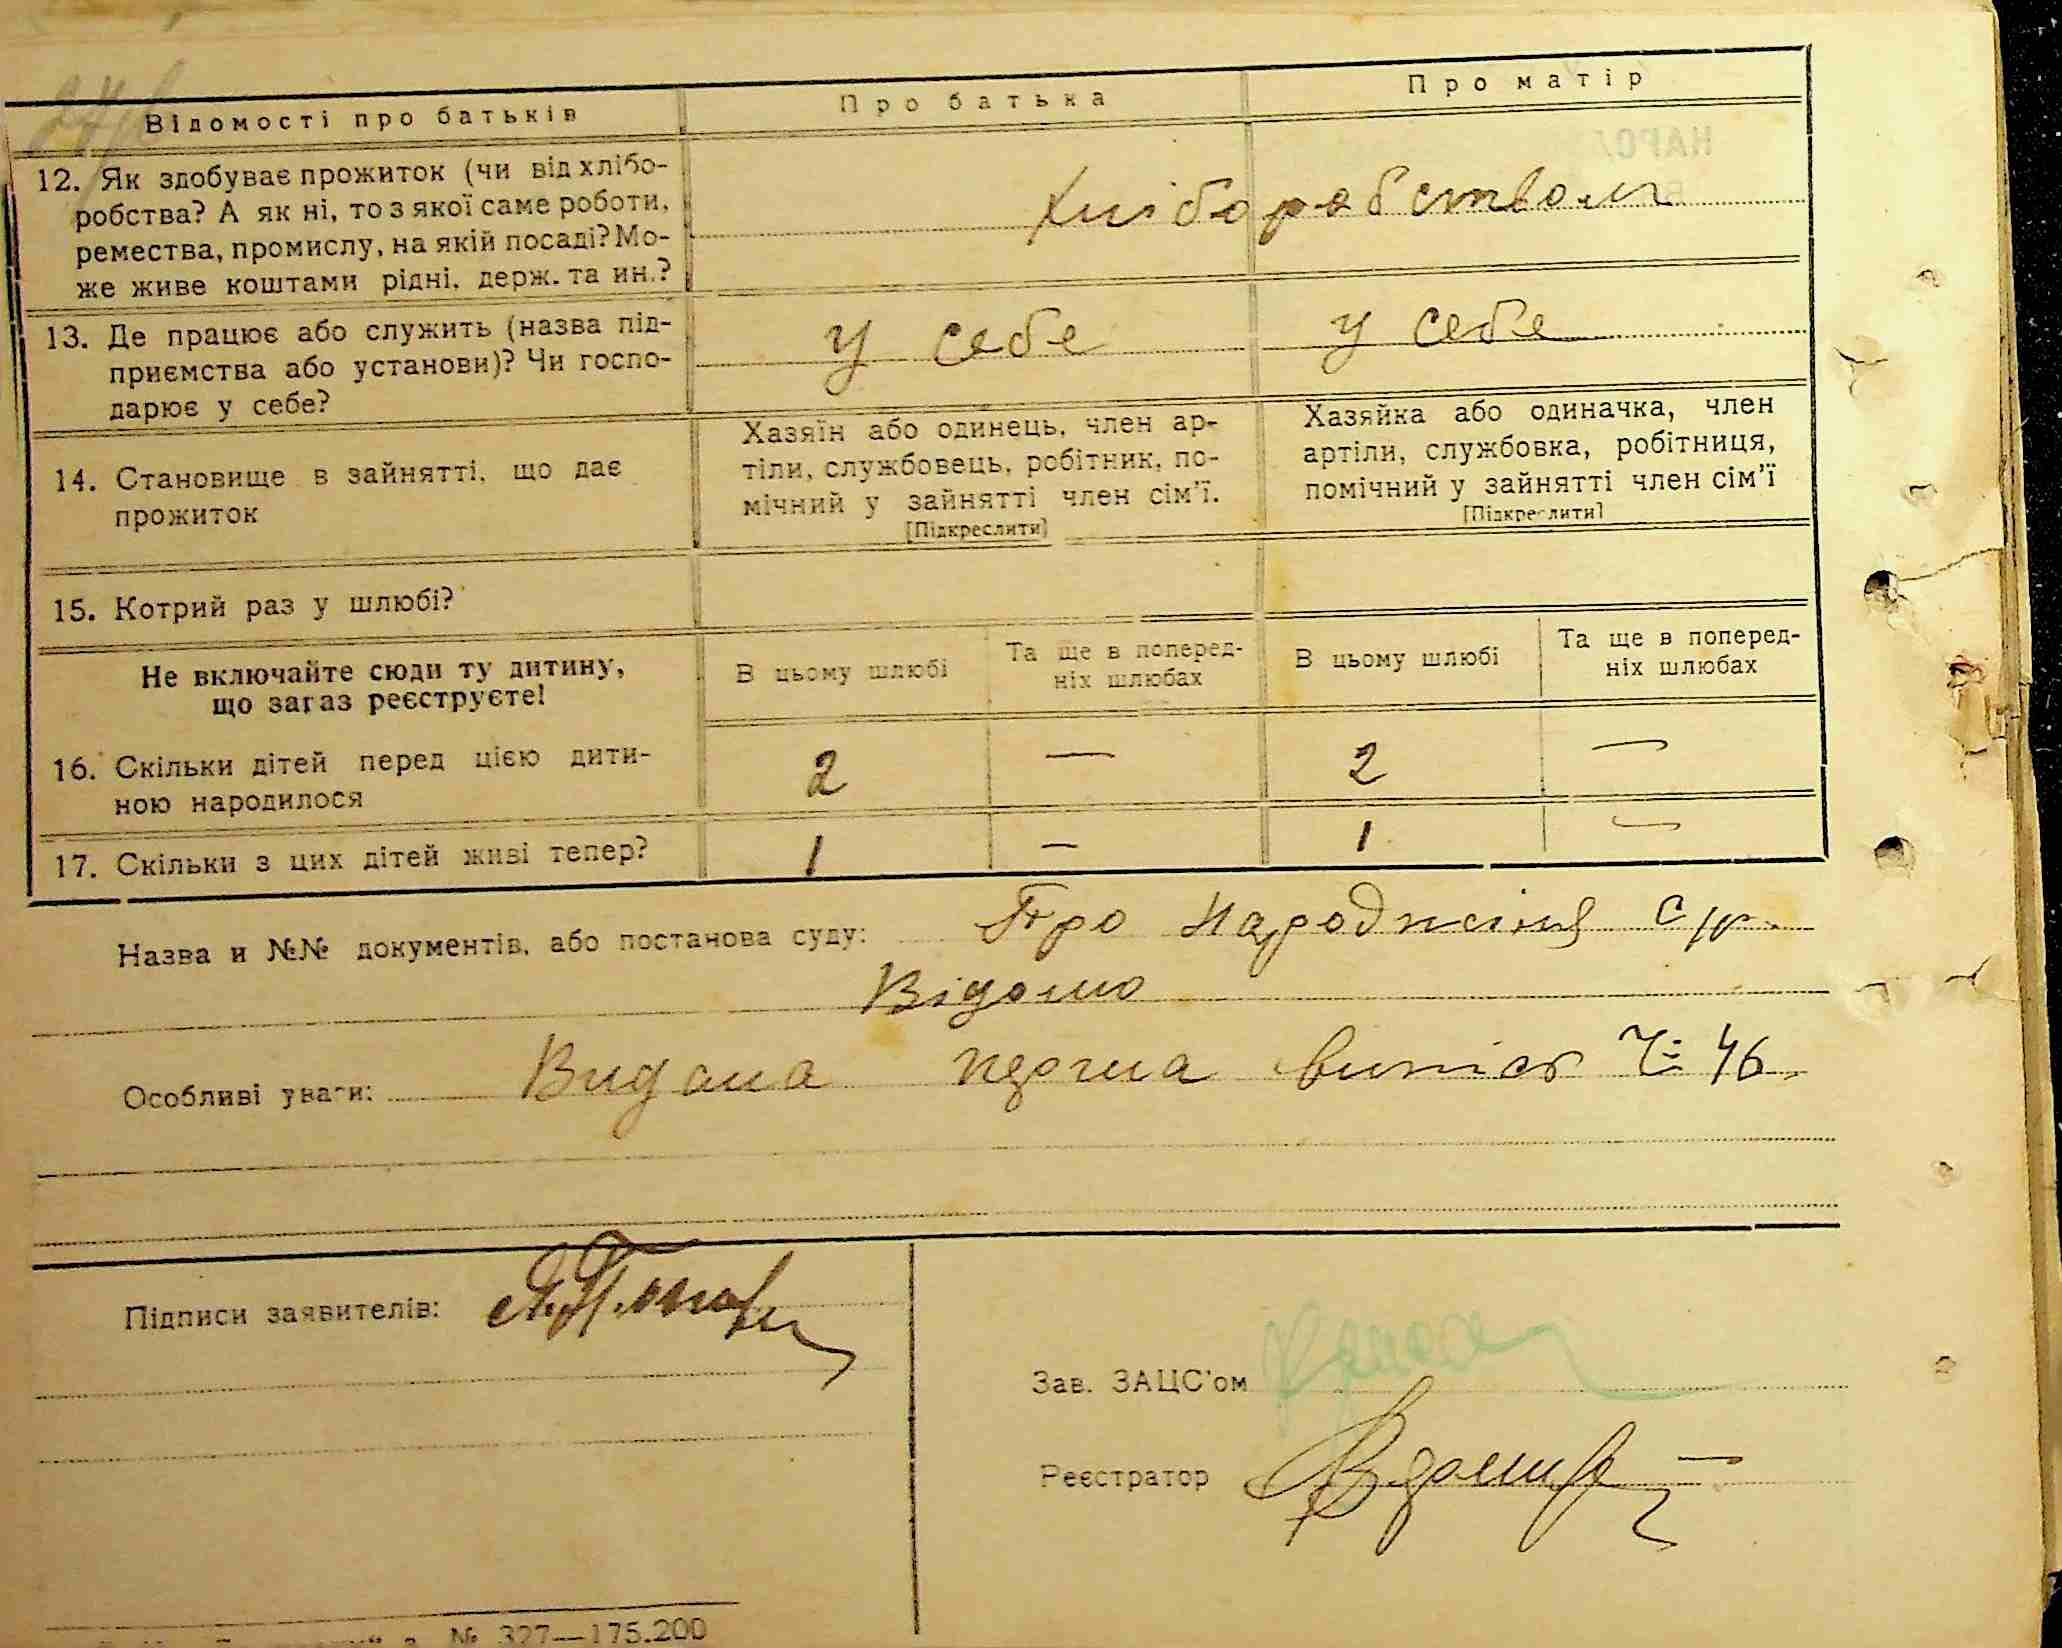 Відомості про батьків
Про батька
Про матір
12. Як здобуває прожиток (чи від хлібо-
робства? А як ні, то з якої саме роботи,
ремества, промислу, на якій посаді? Мо-
же живе коштами рідні, держ. та ин.?
Хліборобством
13. Де працює або служить (назва під-
приємства або установи)? Чи госпо-
дарює у себе?
у себе
у себе
14. Становище в зайнятті, що дає
прожиток
Хазяїн або одинець, член ар-
тіли, службовець, робітник, по-
мічний у зайнятті член сім'ї.
[Підкреслити]
Хазяйка або одиначка, член
артіли, службовка, робітниця,
помічний у зайнятті член сім'ї
[Підкреслити]
15. Котрий раз у шлюбі?
Не включайте сюди ту дитину,
що зараз реєструєте!
В цьому шлюбі
Та ще в поперед-
ніх шлюбах
В цьому шлюбі
Та ще в поперед-
ніх шлюбах
16. Скільки дітей перед цією дити-
ною народилося
2 — 2 —
17. Скільки з цих дітей живі тепер?
1 — 1 —
Назва и №№ документів, або постанова суду: Про народження с/р.
Відомо
Особливі уваги: Видана перша випись Ч: 46
Підписи заявителів:
Зав. ЗАЦС'ом
Реєстратор
№ 327—175.200
НАРО